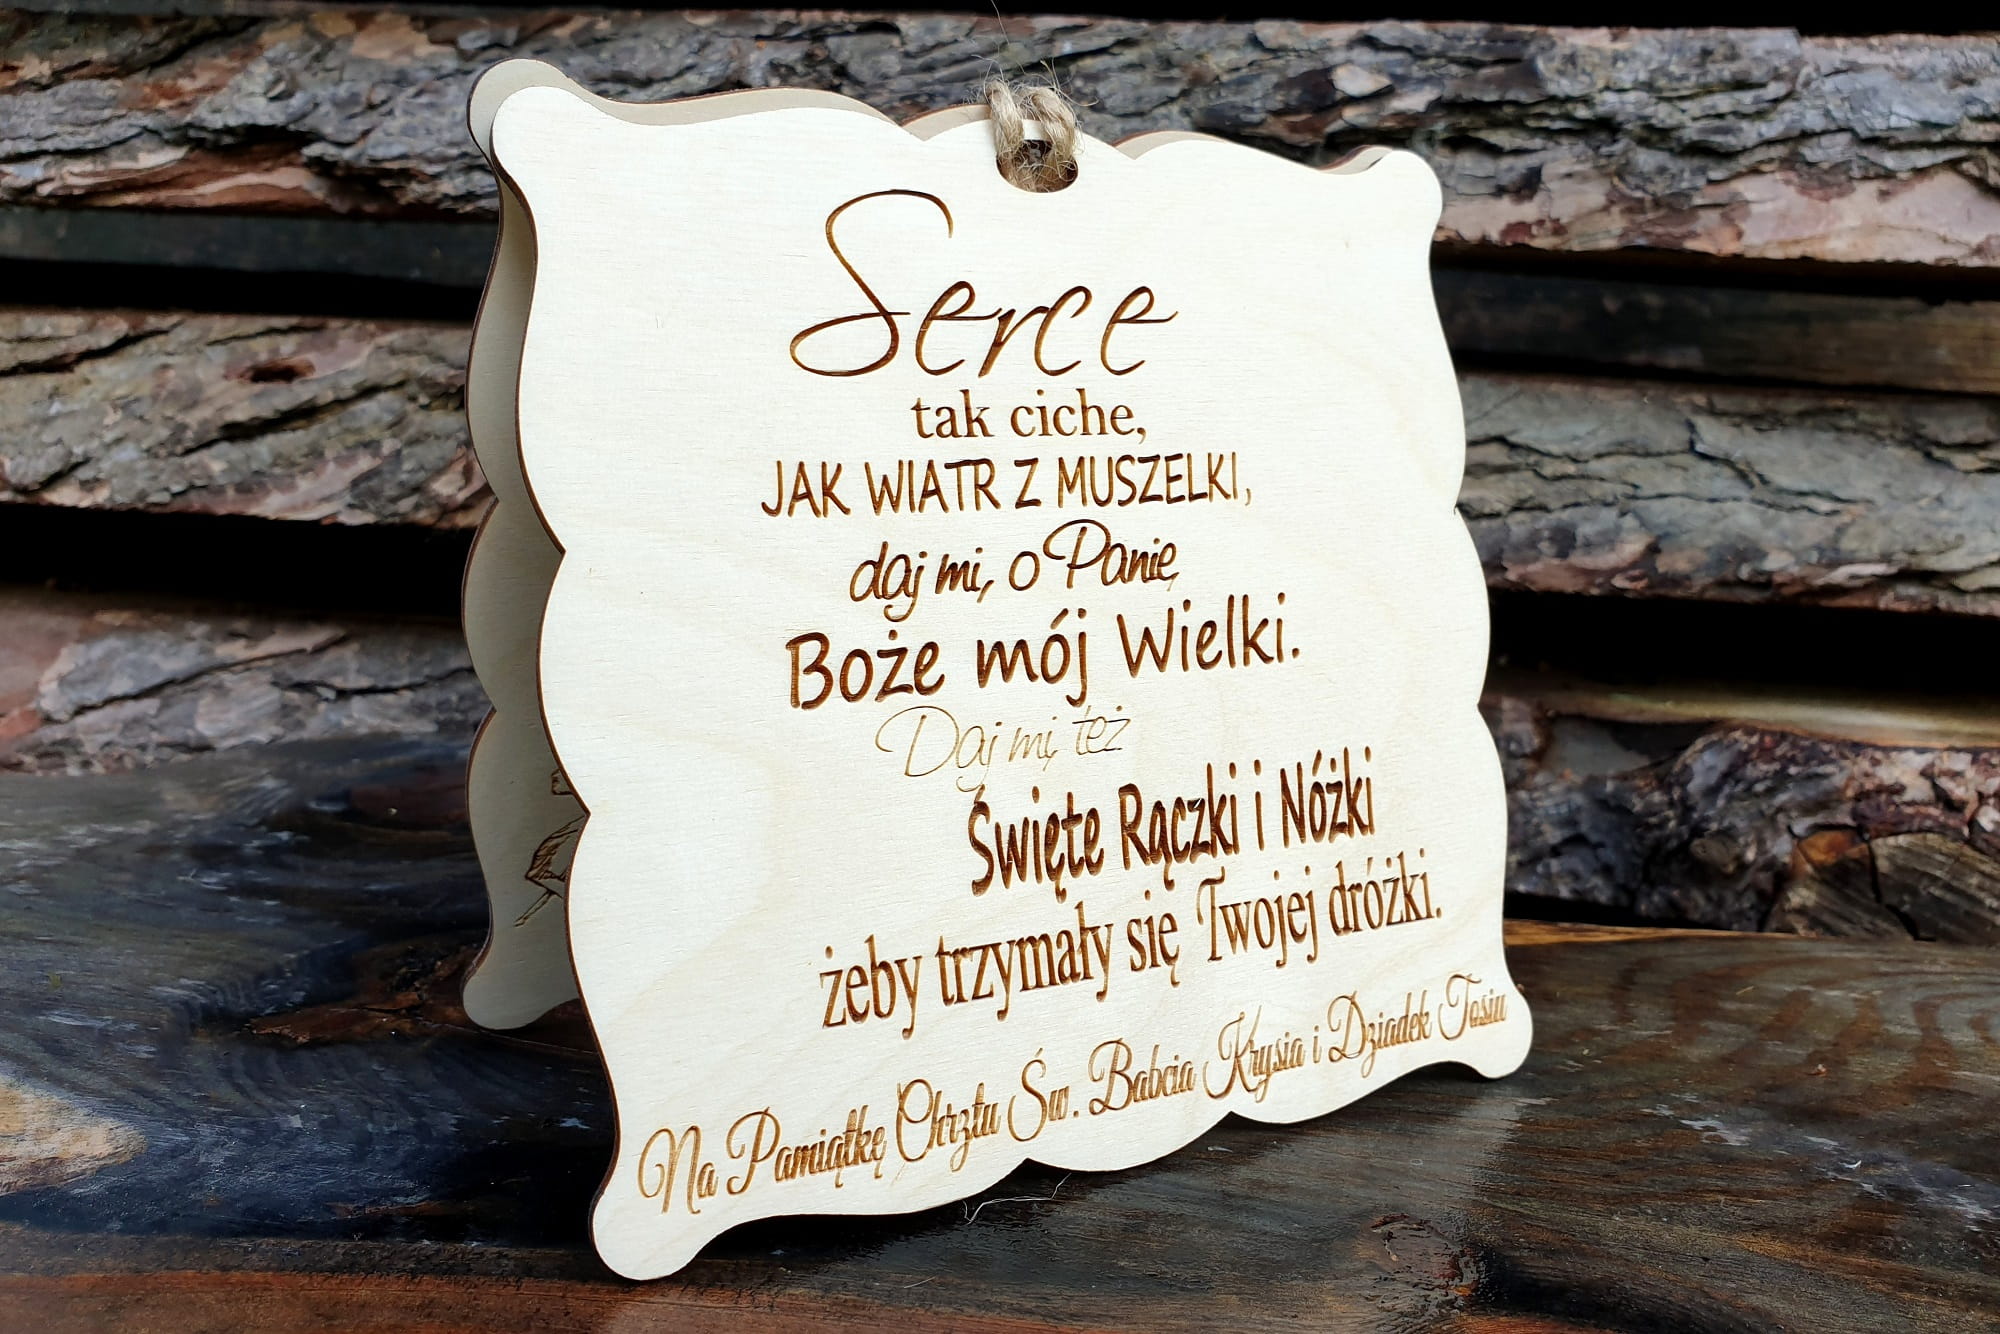 Serce
tak ciche,
JAK WIATR Z MUSZELKI,
daj mi, o Panie,
Boże mój Wielki.
Daj mi, też
Święte Rączki i Nóżki
żeby trzymały się Twojej dróżki.
Na Pamiątkę Chrztu Św. Babcia Krysia i Dziadek Tosiu